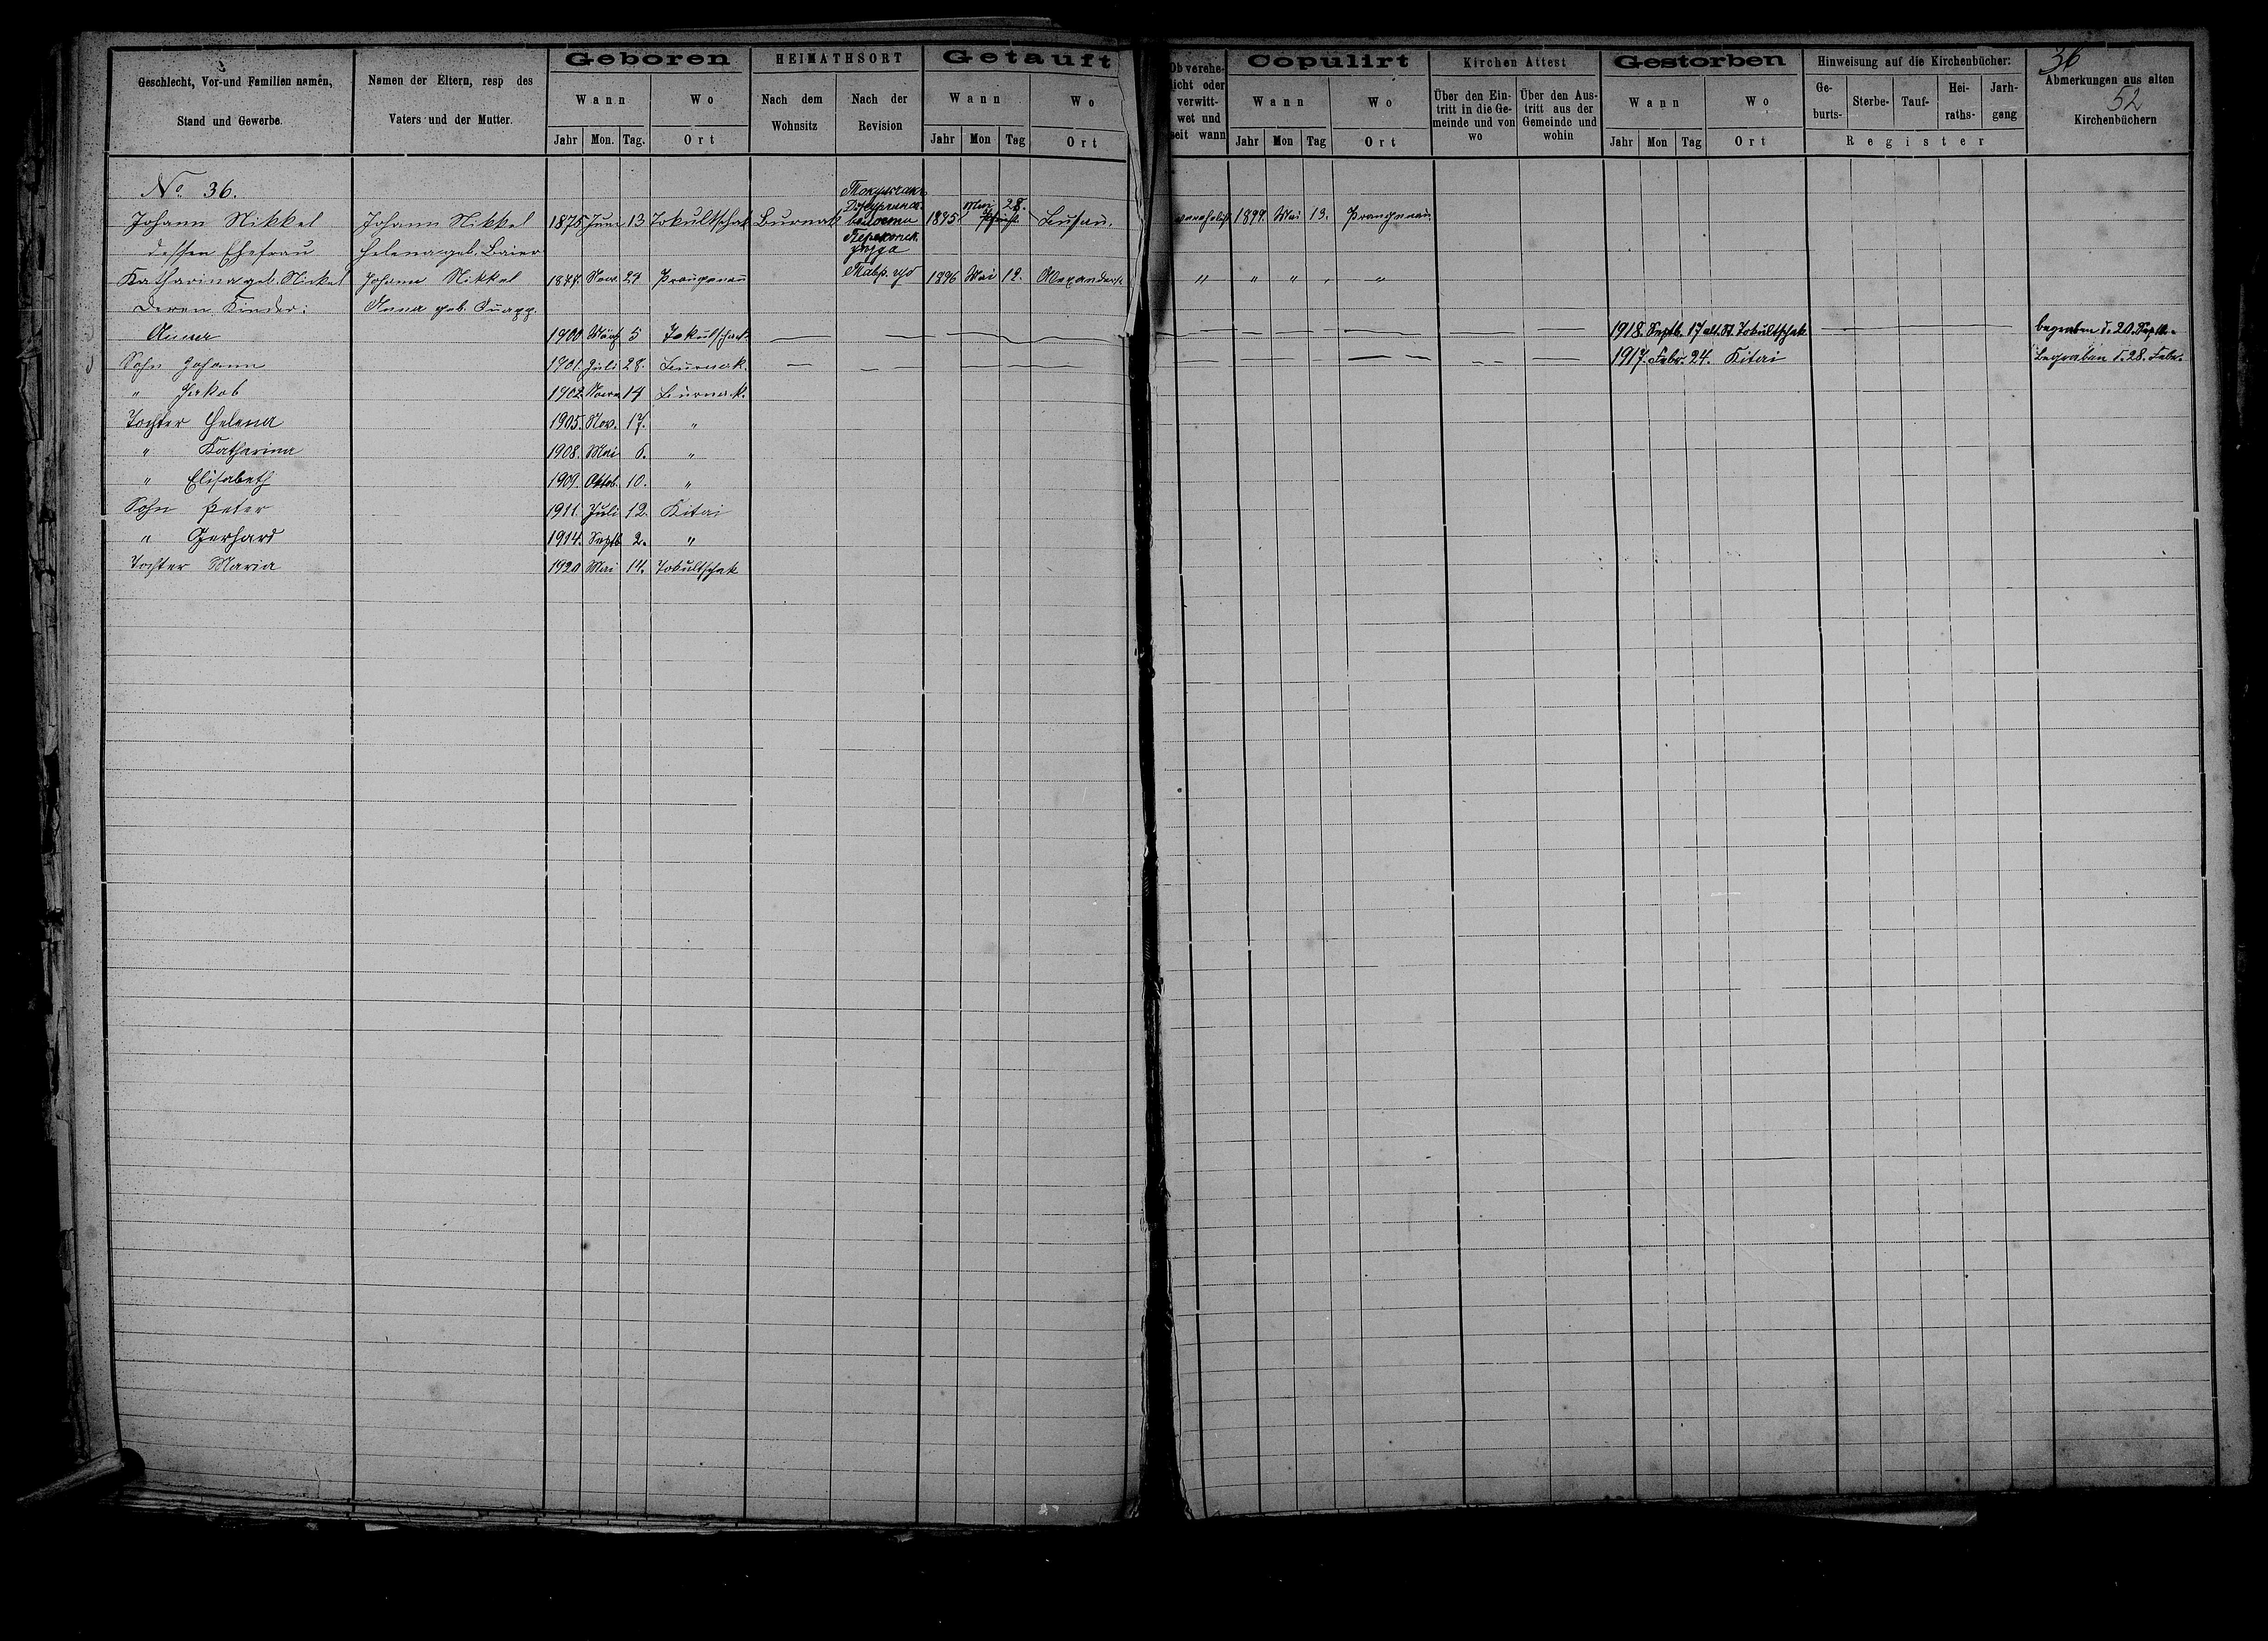 Geschlecht, Vor-und Familien namen,
Stand und Gewerbe.
Namen der Eltern, resp des
Vaters und der Mutter.
Geboren
Wann
Wo
Jahr Mon. Tag. Ort
HEIMATHSORT
Nach dem Wohnsitz
Nach der Revision
Getauft
Wann
Wo
Jahr Mon Tag Ort
Ob verehe-
licht oder
verwitt-
wet und
seit wann
Copulirt
Wann
Wo
Jahr Mon Tag Ort
Kirchen Attest
Über den Ein-
tritt in die Ge-
meinde und von
wo
Über den Aus-
tritt aus der
Gemeinde und
wohin
Gestorben
Wann
Wo
Jahr Mon Tag Ort
Hinweisung auf die Kirchenbücher:
Ge-
burts-
Sterbe-
Tauf-
Hei-
raths-
Jarh-
gang
Register
36
Abmerkungen aus alten
52
Kirchenbüchern
No. 36.
Johann Nikkel Johann Nikkel 1875 Juni 13 Tokultschak Burnak 1895 Mai 28. 1899. Mai 13. Prangenau.
dessen Ehefrau Helena geb. Baier
Katharina geb. Nickel Johann Nikkel 1877. Nov. 24 Prangenau 1896 Mai 12. " " " " "
Deren Kinder: Anna geb. Quapp.
Anna 1900 März 5 Tokultschak. 1918. Septb. 17 alt. St. Tokultschak begraben d. 20. Septb.
Sohn Johann 1901. Juli 28. Burnak. 1917. Febr. 24. Kitai begraben d. 28. Febr.
" Jakob 1902. 14 Burnak.
Tochter Helena 1905. Nov. 17. "
" Katharina 1908. Mai 6. "
" Elisabeth 1909. Oktob. 10. "
Sohn Peter 1911. Juli 12. Kitai
" Gerhard 1914. Septb 2. "
Tochter Maria 1920 Mai 14. Tokultschak